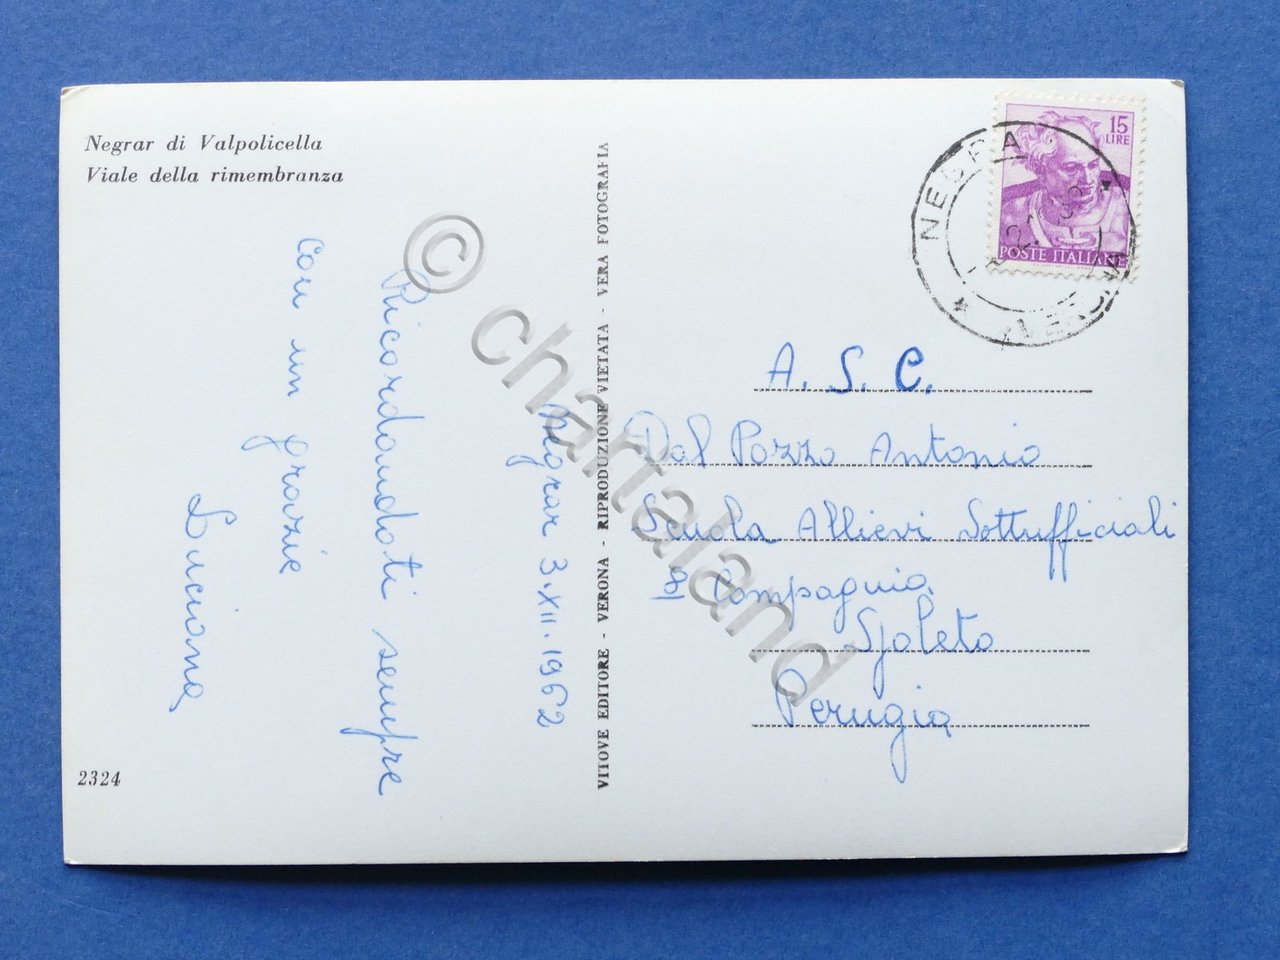 Negrar di Valpolicella
Viale della rimembranza
Negrar 3.XII.1962
Ricordandoti sempre
con un grazie
Luciana
2324
VITOVE EDITORE - VERONA - RIPRODUZIONE VIETATA - VERA FOTOGRAFIA
15
LIRE
POSTE ITALIANE
NEGRA
VERONA
A. S. C.
Dal Pozzo Antonio
Scuola Allievi Sottufficiali
8 Compagnia
Spoleto
Perugia
© chartaland